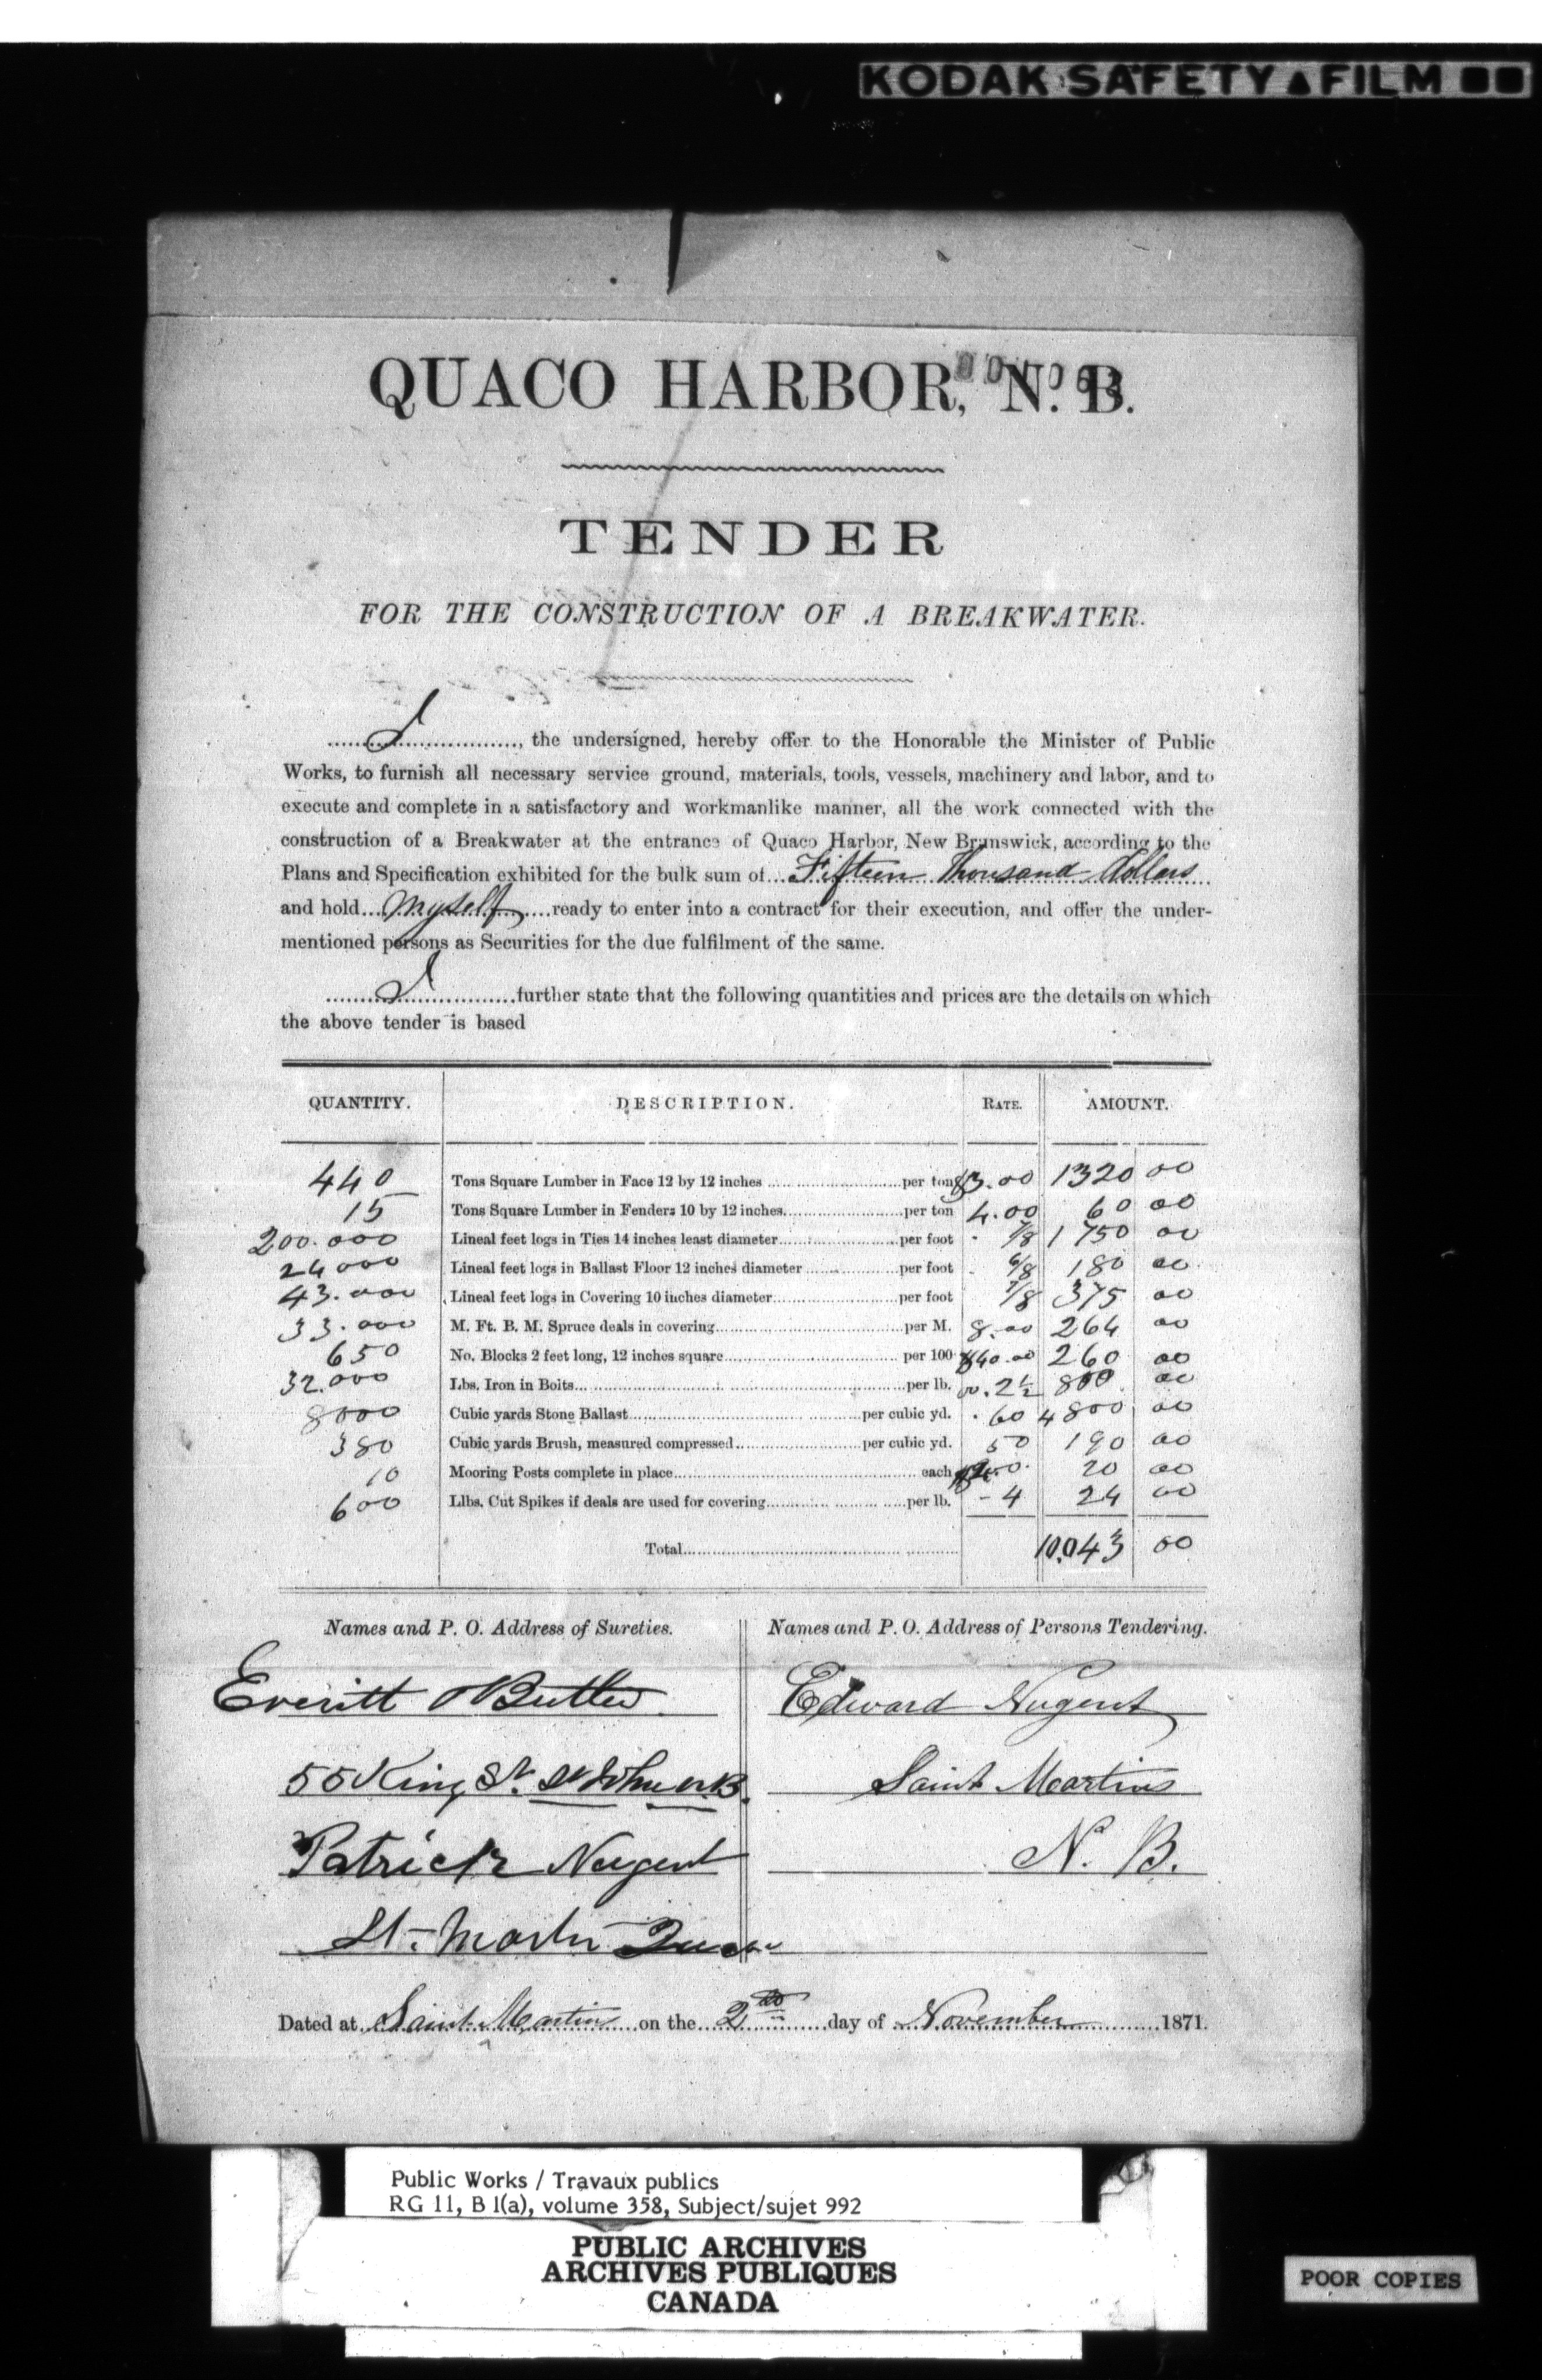 KODAK SAFETY ▲ FILM
QUACO HARBOR, N. B.
TENDER
FOR THE CONSTRUCTION OF A BREAKWATER.
I, the undersigned, hereby offer to the Honorable the Minister of Public
Works, to furnish all necessary service ground, materials, tools, vessels, machinery and labor, and to
execute and complete in a satisfactory and workmanlike manner, all the work connected with the
construction of a Breakwater at the entrance of Quaco Harbor, New Brunswick, according to the
Plans and Specification exhibited for the bulk sum of Fifteen Thousand dollars
and hold myself ready to enter into a contract for their execution, and offer the under-
mentioned persons as Securities for the due fulfilment of the same.
I further state that the following quantities and prices are the details on which
the above tender is based
QUANTITY. DESCRIPTION. RATE. AMOUNT.
440 Tons Square Lumber in Face 12 by 12 inches per ton $3.00 1320 00
15 Tons Square Lumber in Fenders 10 by 12 inches per ton 4.00 60 00
200.000 Lineal feet logs in Ties 14 inches least diameter per foot 7/8 1750 00
24000 Lineal feet logs in Ballast Floor 12 inches diameter per foot 6/8 180 00
43.000 Lineal feet logs in Covering 10 inches diameter per foot 7/8 375 00
33.000 M. Ft. B. M. Spruce deals in covering per M. 8.00 264 00
650 No. Blocks 2 feet long, 12 inches square per 100 $40.00 260 00
32.000 Lbs. Iron in Bolts per lb. 2½ 800 00
8000 Cubic yards Stone Ballast per cubic yd. .60 4800 00
380 Cubic yards Brush, measured compressed per cubic yd. 50 190 00
10 Mooring Posts complete in place each 20 00
600 Llbs. Cut Spikes if deals are used for covering per lb. - 4 24 00
Total 10,043 00
Names and P. O. Address of Sureties. Names and P. O. Address of Persons Tendering.
Everitt & Butler Edward Nugent
55 King St. St John N.B. Saint Martins
Patrick Nugent N. B.
St. Martin
Dated at Saint Martins on the 2nd day of November 1871.
Public Works / Travaux publics
RG 11, B 1(a), volume 358, Subject/sujet 992
PUBLIC ARCHIVES
ARCHIVES PUBLIQUES
CANADA
POOR COPIES